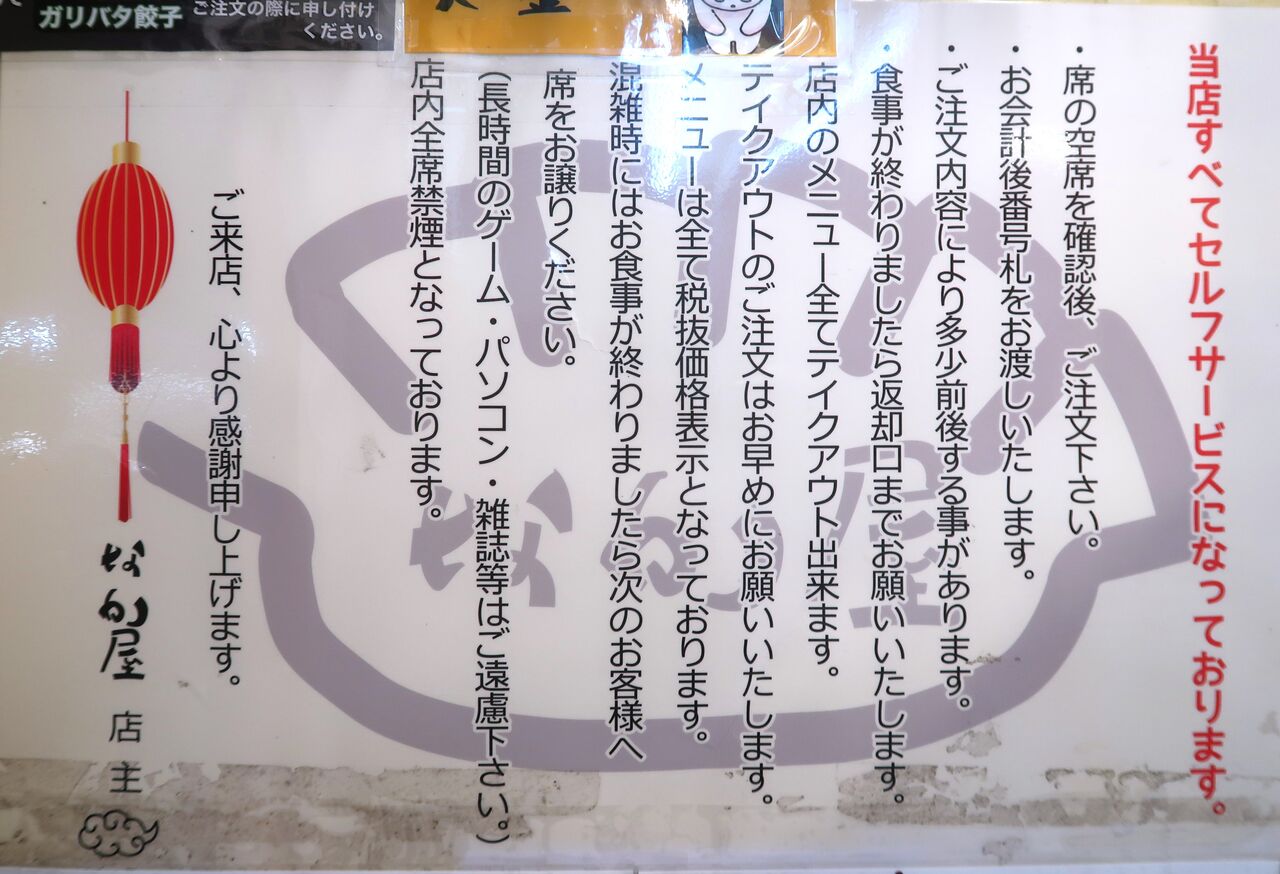 ガリバタ餃子
ご注文の際に申し付け
ください。
当店すべてセルフサービスになっております。
・席の空席を確認後、ご注文下さい。
・お会計後番号札をお渡しいたします。
・ご注文内容により多少前後する事があります。
・食事が終わりましたら返却口までお願いいたします。
店内のメニュー全てテイクアウト出来ます。
テイクアウトのご注文はお早めにお願いいたします。
メニューは全て税抜価格表示となっております。
混雑時にはお食事が終わりましたら次のお客様へ
席をお譲りください。
(長時間のゲーム・パソコン・雑誌等はご遠慮下さい。)
店内全席禁煙となっております。
ご来店、心より感謝申し上げます。
なか屋 店主
なか屋